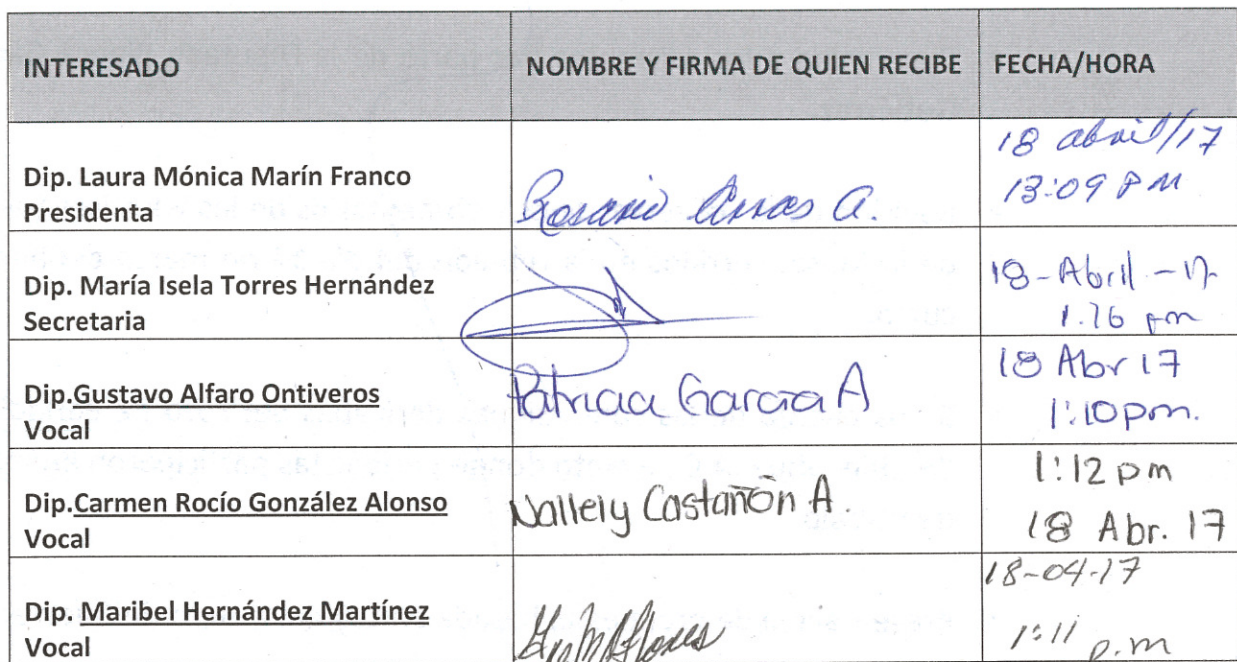 INTERESADO NOMBRE Y FIRMA DE QUIEN RECIBE FECHA/HORA
Dip. Laura Mónica Marín Franco
Presidenta
Rosario Arras A.
18 abril/17
13:09 PM
Dip. María Isela Torres Hernández
Secretaria
18-Abril-17
1:16 pm
Dip.Gustavo Alfaro Ontiveros
Vocal
Patricia García A
18 Abr 17
1:10 pm.
Dip.Carmen Rocío González Alonso
Vocal
Nallely Castañón A.
1:12 pm
18 Abr. 17
Dip. Maribel Hernández Martínez
Vocal
Flores
18-04-17
1:11 p.m